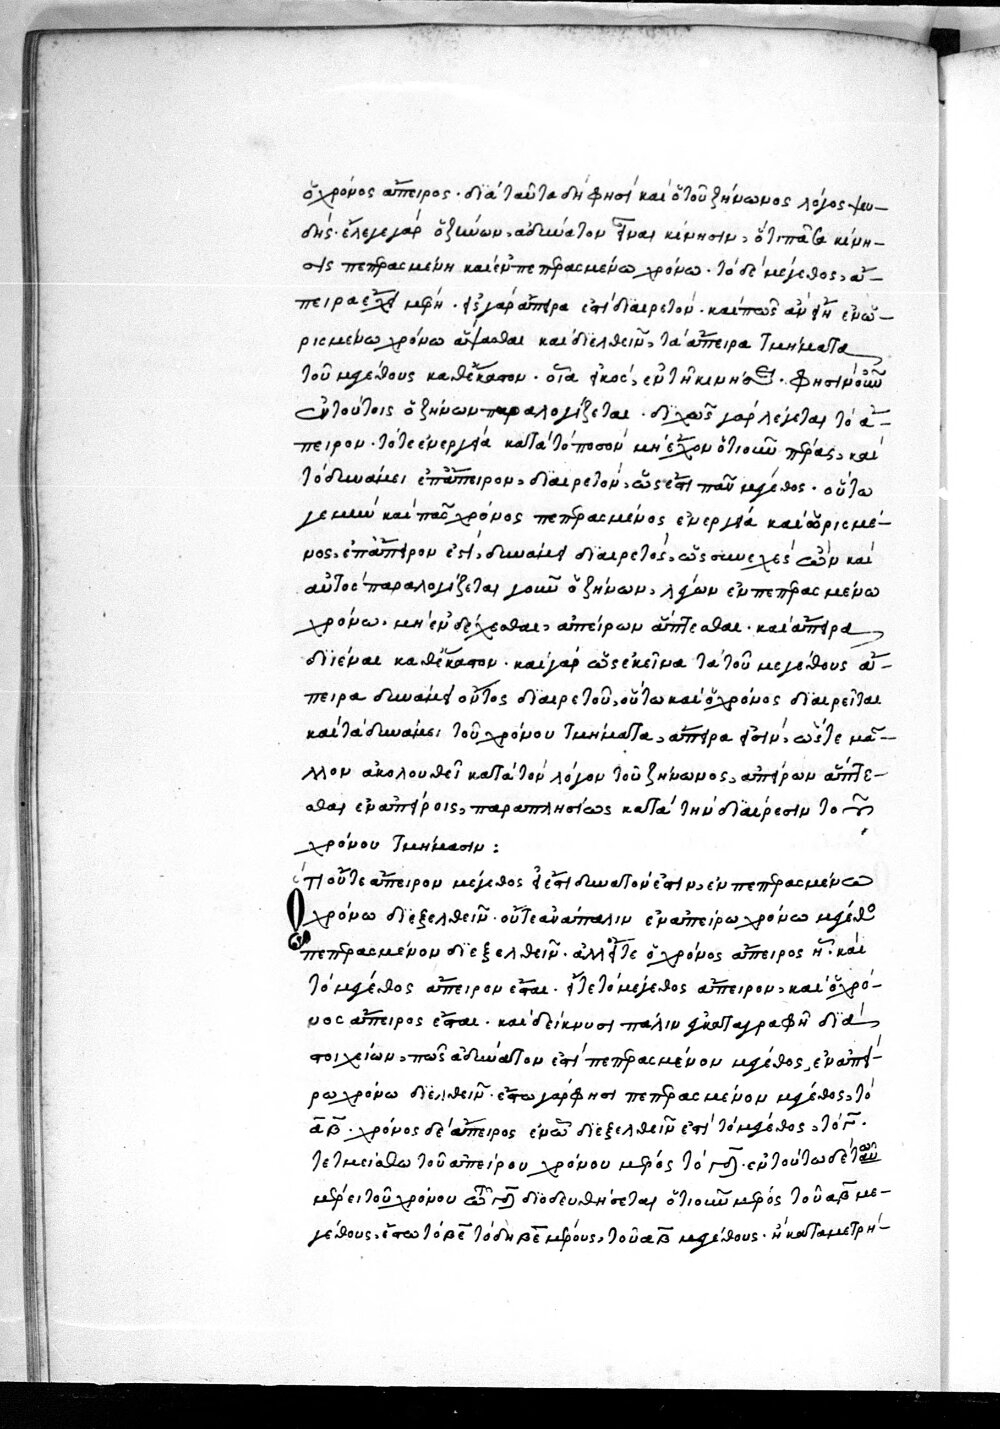 ὁ χρόνος ἄπειρος· διὰ ταῦτα δή φησι καὶ ὁ τοῦ ζήνωνος λόγος ψευ-
δής· ἔλεγε γὰρ ὁ ζήνων, ἀδύνατον εἶναι κίνησιν, ὅτι πᾶσα κίνη-
σις πεπερασμένη καὶ ἐν πεπερασμένω χρόνω· τὸ δὲ μέγεθος, ἄ-
πειρα ἔχει μέρη· εἰς γὰρ ἄπειρα ἐστὶ διαιρετόν· καὶ πῶς ἂν εἴη ἐν ὡ-
ρισμένω χρόνω ἅψασθαι καὶ διελθεῖν, τὰ ἄπειρα τμήματα
τοῦ μεγέθους καθέκαστον· οἷα εἰκός, ἐν τῆ κινήσει· φησὶν οὖν
ἐν τούτοις ὁ ζήνων παραλογίζεται· διχῶς γὰρ λέγεται τὸ ἄ-
πειρον· τότε ἐνεργεία κατὰ τὸ ποσὸν μὴ ἔχον ὁτιοῦν πέρας, καὶ
τὸ δυνάμει ἐπ' ἄπειρον, διαιρετόν, ὡς ἐστὶ πᾶν μέγεθος· οὕτω
γε μὴν καὶ πᾶς χρόνος πεπερασμένος ἐνεργεία καὶ ὡρισμέ-
νος, ἐπ' ἄπειρον ἐστί, δυνάμει διαιρετός, ὡς συνεχές ὢν καὶ
αὐτός παραλογίζεται γοῦν ὁ ζήνων, λέγων ἐν πεπερασμένω
χρόνω, μὴ ἐνδέχεσθαι, ἀπείρων ἅπτεσθαι· καὶ ἄπειρα
διϊέναι καθέκαστον· καὶ γὰρ ὡς ἐκεῖνα τὰ τοῦ μεγέθους ἄ-
πειρα δυνάμει ὄντος διαιρετοῦ, οὕτω καὶ ὁ χρόνος διαιρεῖται
καὶ τὰ δυνάμει τοῦ χρόνου τμήματα, ἄπειρα εἰσίν, ὥστε μᾶ-
λλον ἀκολουθεῖ κατὰ τὸν λόγον τοῦ ζήνωνος, ἀπείρων ἅπτε-
σθαι ἐν ἀπείροις, παραπλησίως κατὰ τὴν διαίρεσιν τοῦ
χρόνου τμήμασιν:
ὅτι οὔτε ἄπειρον μέγεθος διελθεῖν δυνατόν ἐστιν, ἐν πεπερασμένω
χρόνω διεξελθεῖν· οὔτε ἀνάπαλιν ἐν ἀπείρω χρόνω μέγεθος
πεπερασμένον διεξελθεῖν· ἀλλ' εἴτε ὁ χρόνος ἄπειρος ἦ· καὶ
τὸ μέγεθος ἄπειρον ἔσται· εἴτε τὸ μέγεθος ἄπειρον, καὶ ὁ χρό-
νος ἄπειρος ἔσται· καὶ δείκνυσι πάλιν ἐν καταγραφῆ διὰ
στοιχείων, πῶς ἀδύνατον ἐστὶ πεπερασμένον μέγεθος, ἐν ἀπεί-
ρω χρόνω διελθεῖν· ἔστω γάρ φησι πεπερασμένον μέγεθος, τὸ
αβ· χρόνος δὲ ἄπειρος ἐν ὧ διεξελθεῖν ἐστὶ τὸ μέγεθος, τὸ γ·
τετμείσθω τοῦ ἀπείρου χρόνου μέρος τὸ γδ· ἐν τούτω δὲ
μέρει τοῦ χρόνου τῶ γδ διοδευθήσεται ὁτιοῦν μέρος τοῦ αβ με-
γέθους, ἔστω τὸ βε τὸ δὴ βε μέρους, τοῦ αβ μεγέθους· ἢ καταμετρή-